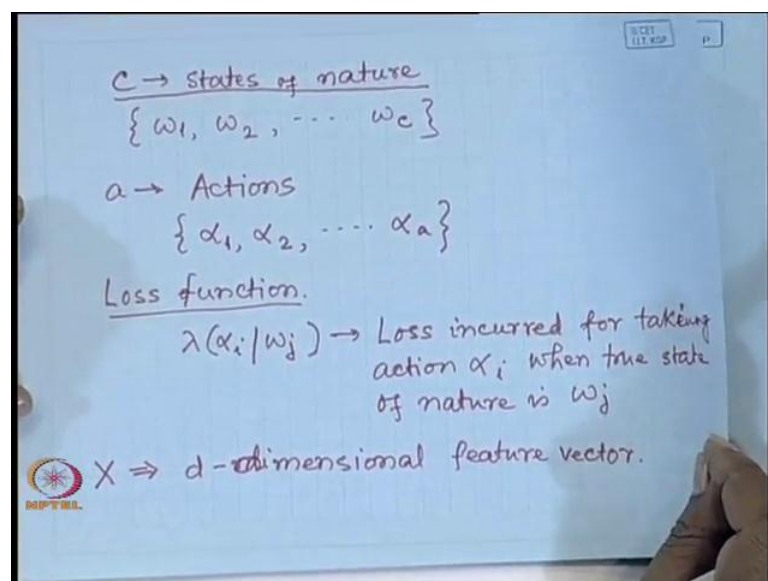 © CET
I.I.T. KGP
P
C → states of nature
{ ω1, ω2, ---- ωc }
a → Actions
{ α1, α2, ---- αa }
Loss function.
λ(αi/ωj) → Loss incurred for taking
action αi when true state
of nature is ωj
X ⇒ d-dimensional feature vector.
NPTEL